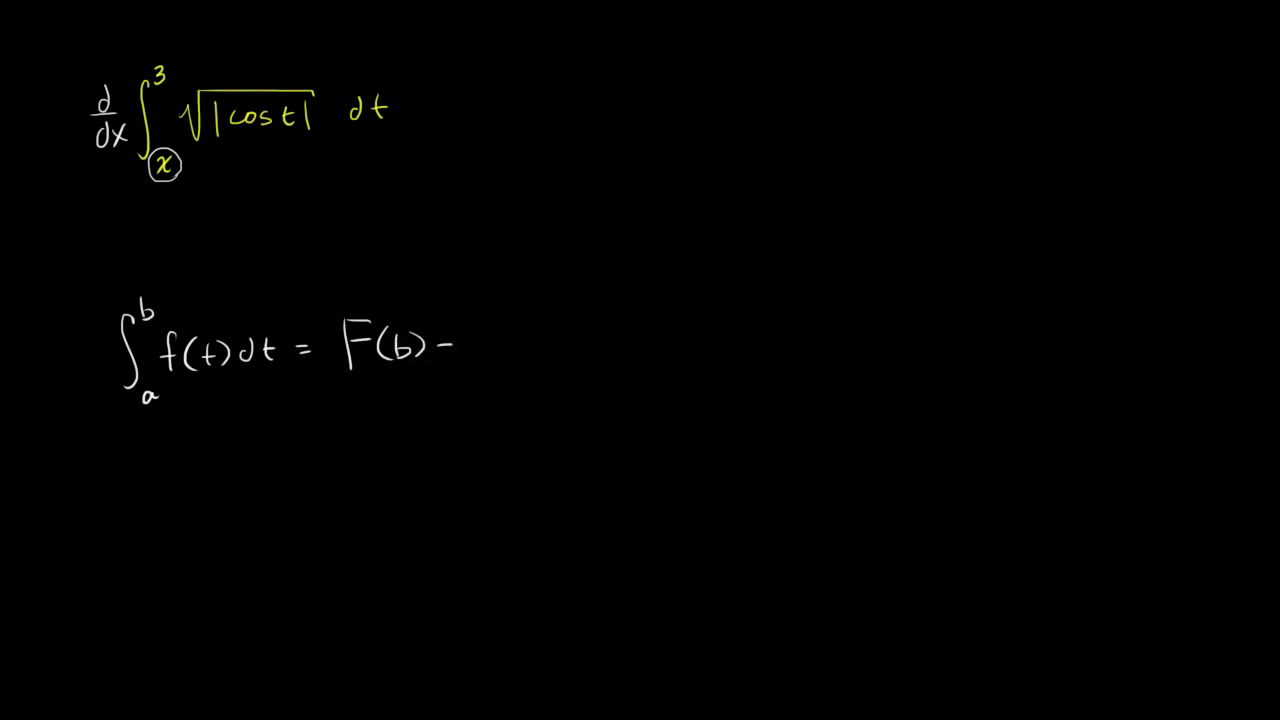 d/dx ∫_x^3 √|cos t| dt
∫_a^b f(t) dt = F(b) −